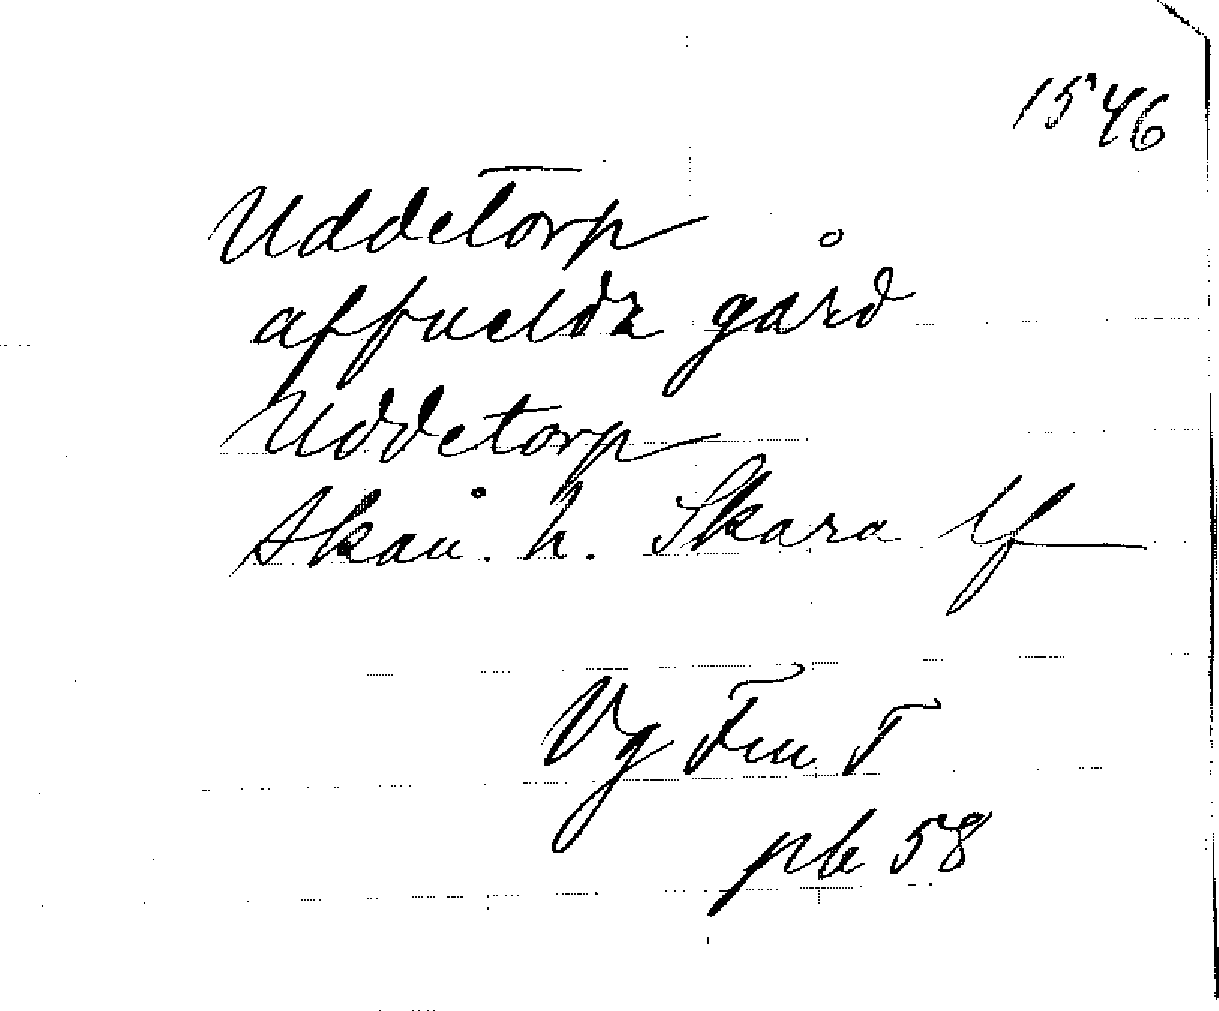 1546
Uddetorp
affueldz gård
Uddetorp
Skån. h. Skara lf
Vg Fru T
pb 58